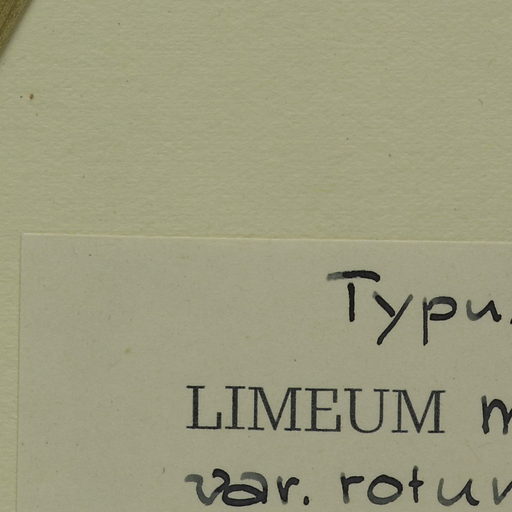 Typu
LIMEUM
var. rotun